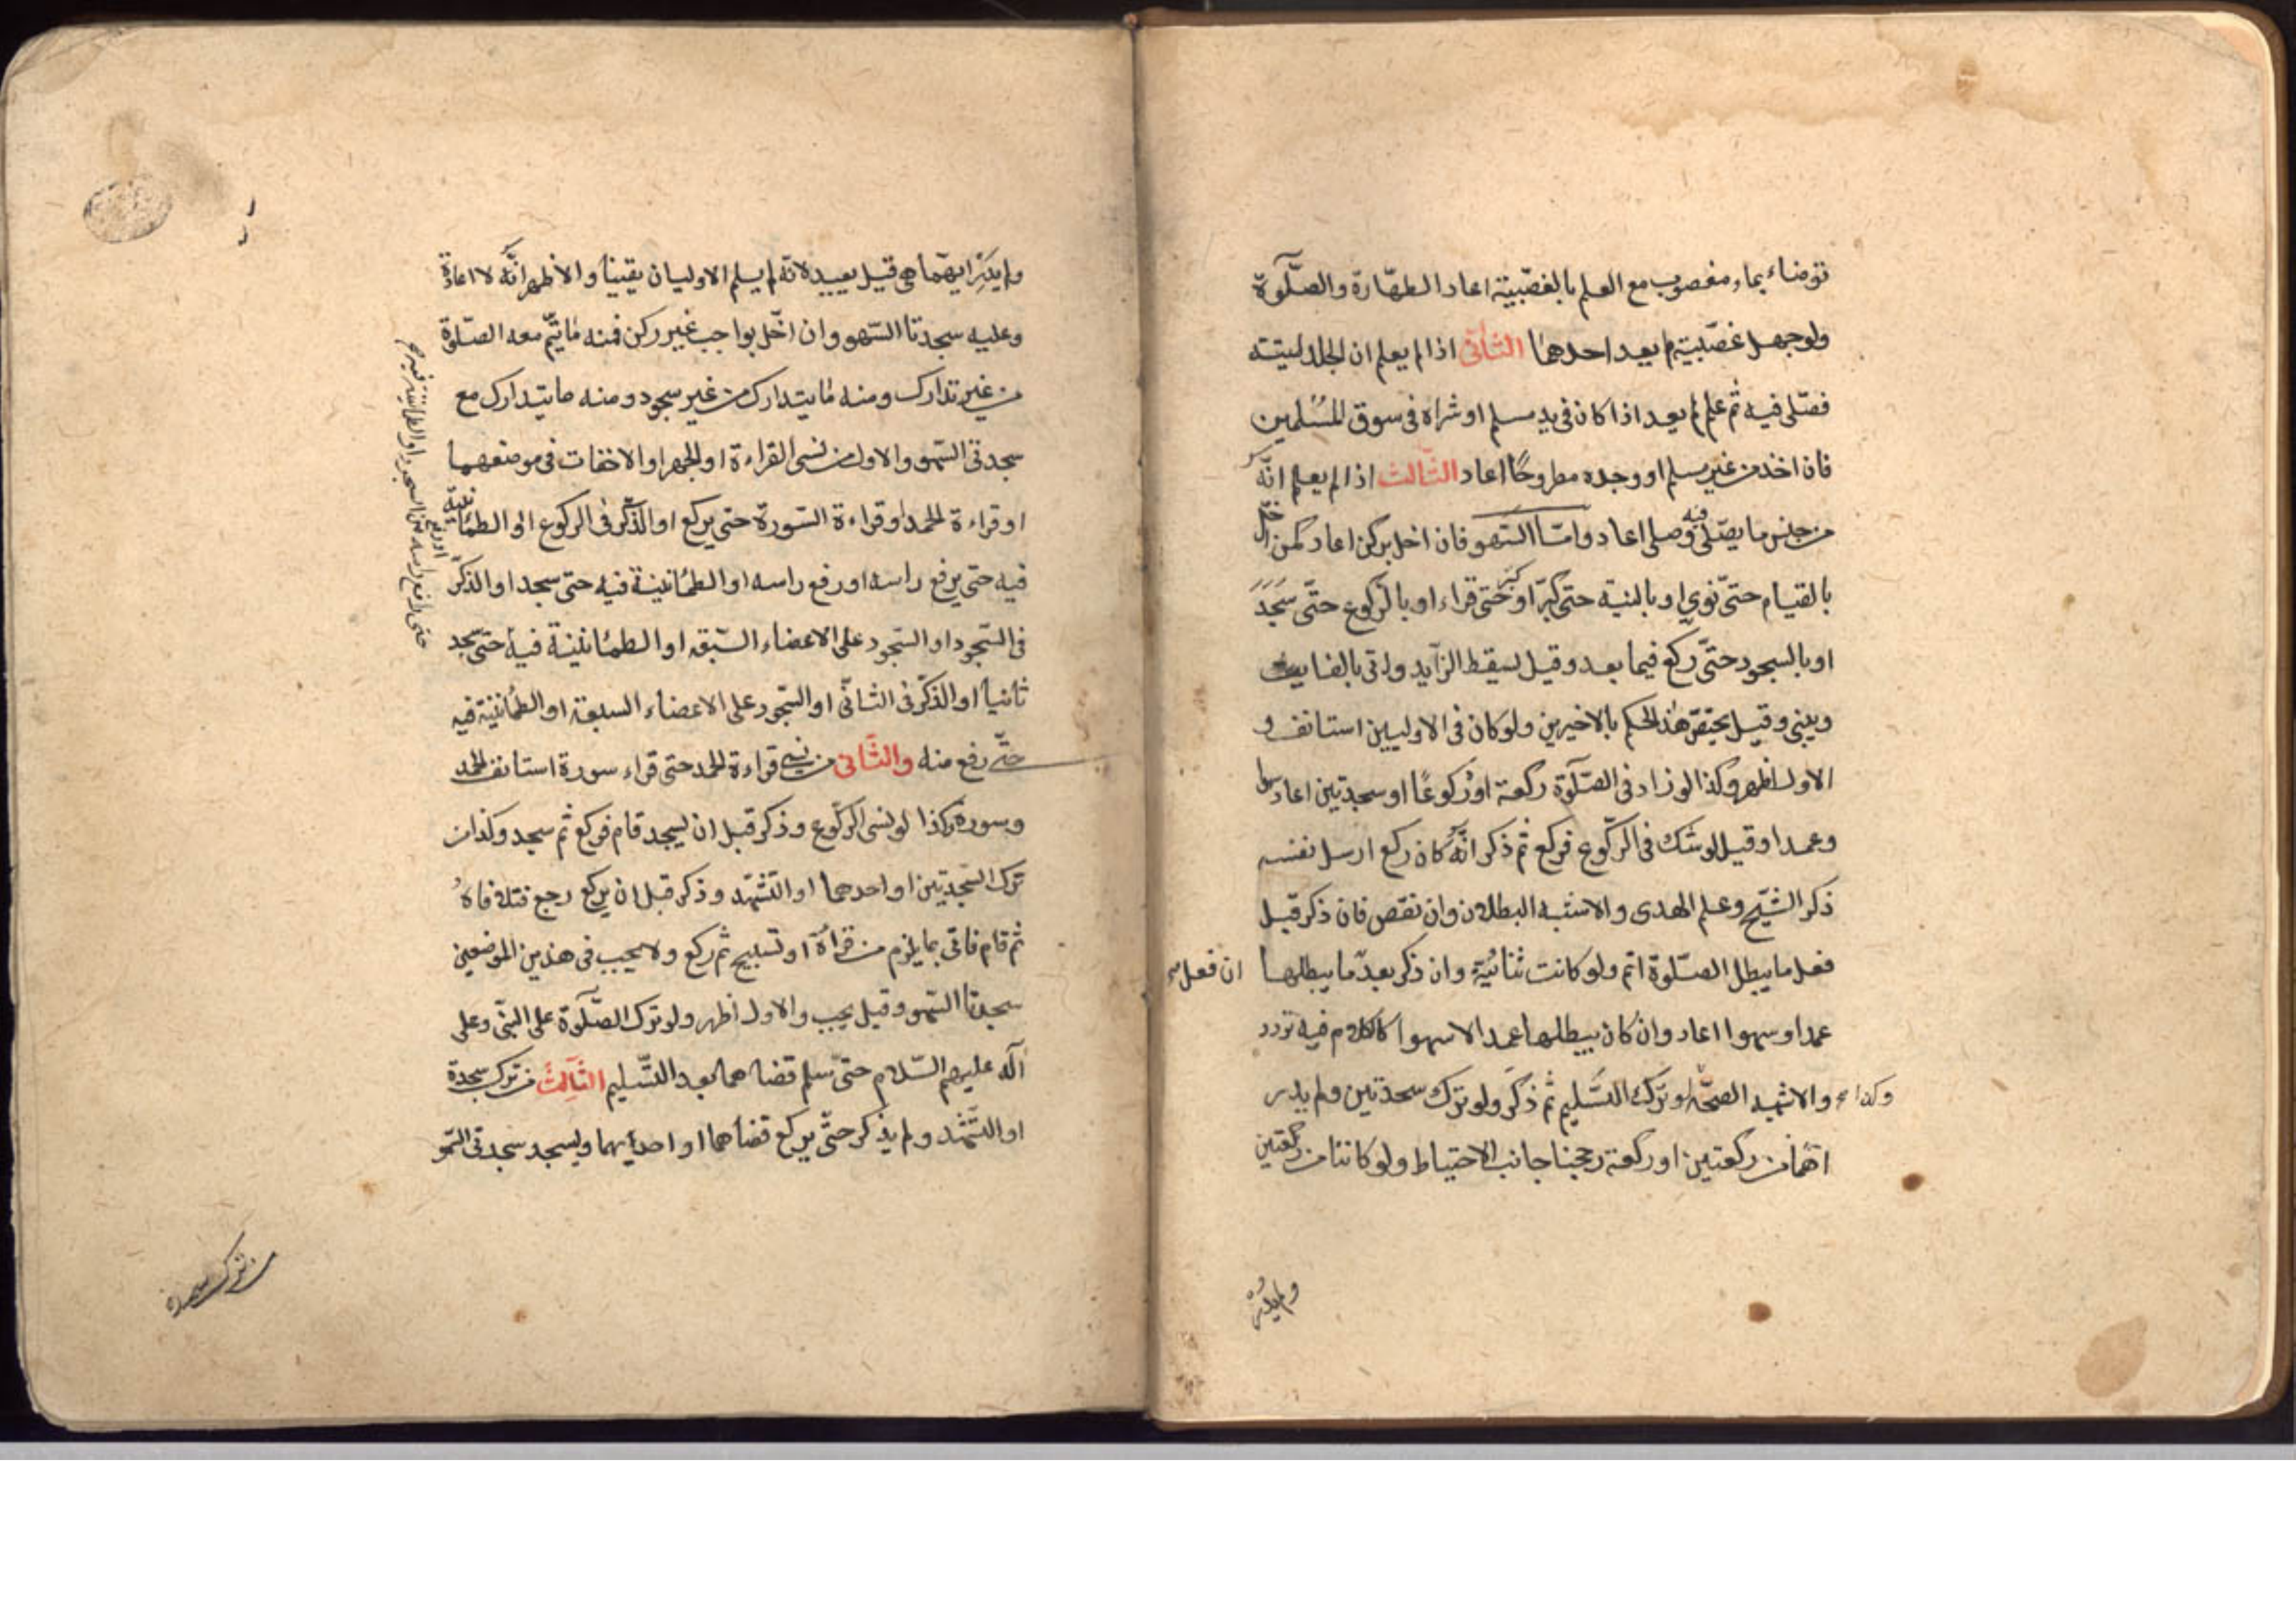 توضاء بماء مغصوب مع العلم بالغصبية اعاد الطهارة والصلوة
ولو جهل غصبيته لم يعد احدهما الثانى اذا لم يعلم ان الجلد ميتة
فصلى فيه ثم علم لم يعد اذا كان فى يد مسلم او شراه فى سوق المسلمين
فان اخذ من غير مسلم او وجده مطروحا اعاد الثالث اذا لم يعلم انه
من جنس ما يصلى فيه وصلى اعاد واما السهو فان اخل بركن اعاد كمن اخل
بالقيام حتى نوى او بالنية حتى كبر او حتى قراء او بالركوع حتى سجد
او بالسجود حتى ركع فيما بعد وقيل يسقط الزايد وياتى بالفايت
ويبنى وقيل يختص هذا الحكم بالاخيرين ولو كان فى الاوليين استانف و
الاول اظهر وكذا لو زاد فى الصلوة ركعة او ركوعا او سجدتين اعاد سهوا
وعمدا وقيل لو شك فى الركوع فركع ثم ذكر انه كان ركع ارسل نفسه
ذكر الشيخ وعلم الهدى والاشبه البطلان وان نقص فان ذكر قبل
فعل ما يبطل الصلوة اتم ولو كانت ثنائية وان ذكر بعد ما يبطلها ان فعل
عمدا وسهوا اعاد وان كان يبطلها عمدا لا سهوا كالكلام فيه تردد
والاشبه الصحة وكذا لو ترك التسليم ثم ذكر ولو ترك سجدتين ولم يدر
انهما من ركعتين او ركعة رجحنا جانب الاحتياط ولو كانتا من ركعتين
ولم يدر
ولم يدر ايتهما هى قيل يعيد لانه لم يسلم الاوليان يقينا والاظهر انه لا اعادة
وعليه سجدتا السهو وان اخل بواجب غير ركن فمنه ما يتم معه الصلوة
من غير تدارك ومنه ما يتدارك من غير سجود ومنه ما يتدارك مع
سجدتى السهو والاول من نسى القراءة او الجهر او الاخفات فى موضعهما
او قراءة الحمد او قراءة السورة حتى يركع او الذكر فى الركوع او الطمانينة
فيه حتى يرفع راسه او رفع راسه او الطمانينة فيه حتى سجد او الذكر
فى السجود او السجود على الاعضاء السبعة او الطمانينة فيه حتى سجد
ثانيا او الذكر فى الثانى او السجود على الاعضاء السبعة او الطمانينة فيه
حتى رفع منه والثانى من نسى قراءة الحمد حتى قراء سورة استانف الحمد
وسورة وكذا لو نسى الركوع وذكر قبل ان يسجد قام فركع ثم سجد وكذا من
ترك السجدتين او احدهما او التشهد وذكر قبل ان يركع رجع فتلافاه
ثم قام فاتى بما يلزم من قراءة او تسبيح ثم ركع ولا يجب فى هذين الموضعين
سجدتا السهو وقيل يجب والاول اظهر ولو ترك الصلوة على النبى وعلى
آله عليهم السلام حتى سلم قضاهما بعد التسليم الثالث من ترك سجدة
او التشهد ولم يذكر حتى يركع قضاهما او احديهما ويسجد سجدتى السهو
او رفع راسه من السجود او الطمانينة فيه
حتى
من ترك سجدة